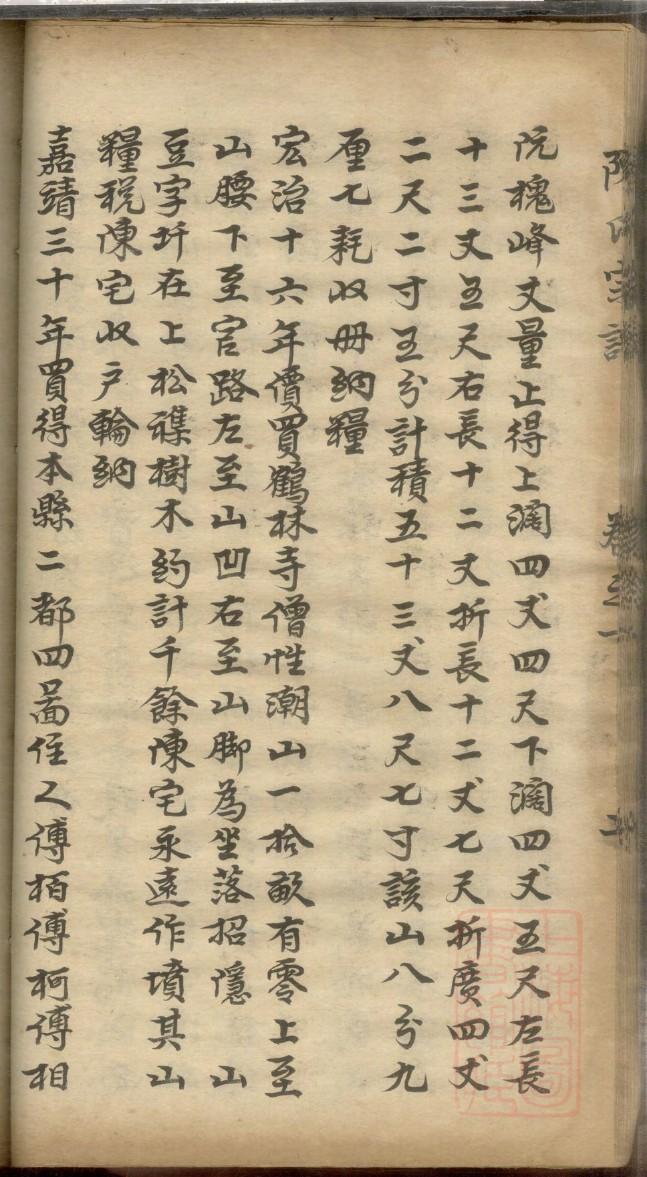 阮槐峰丈量止得上濶四丈四尺下濶四丈五尺左長
十三丈五尺右長十二丈折長十二丈七尺折廣四丈
二尺二寸五分計積五十三丈八尺七寸該山八分九
厘七耗收册納糧
宏治十六年價買鶴林寺僧性潮山一拾畝有零上至
山腰下至官路左至山凹右至山脚為坐落招隱 山
豆字圩在上松襍樹木約計千餘陳宅永遠作墳其山
糧税陳宅收戸輪納
嘉靖三十年買得本縣二都四啚住人傅栢傅柯傅相